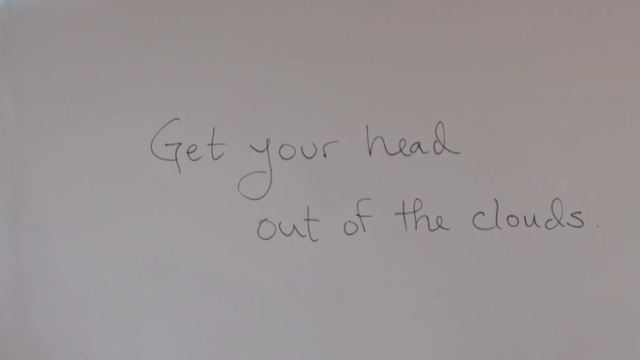 Get your head
out of the clouds.